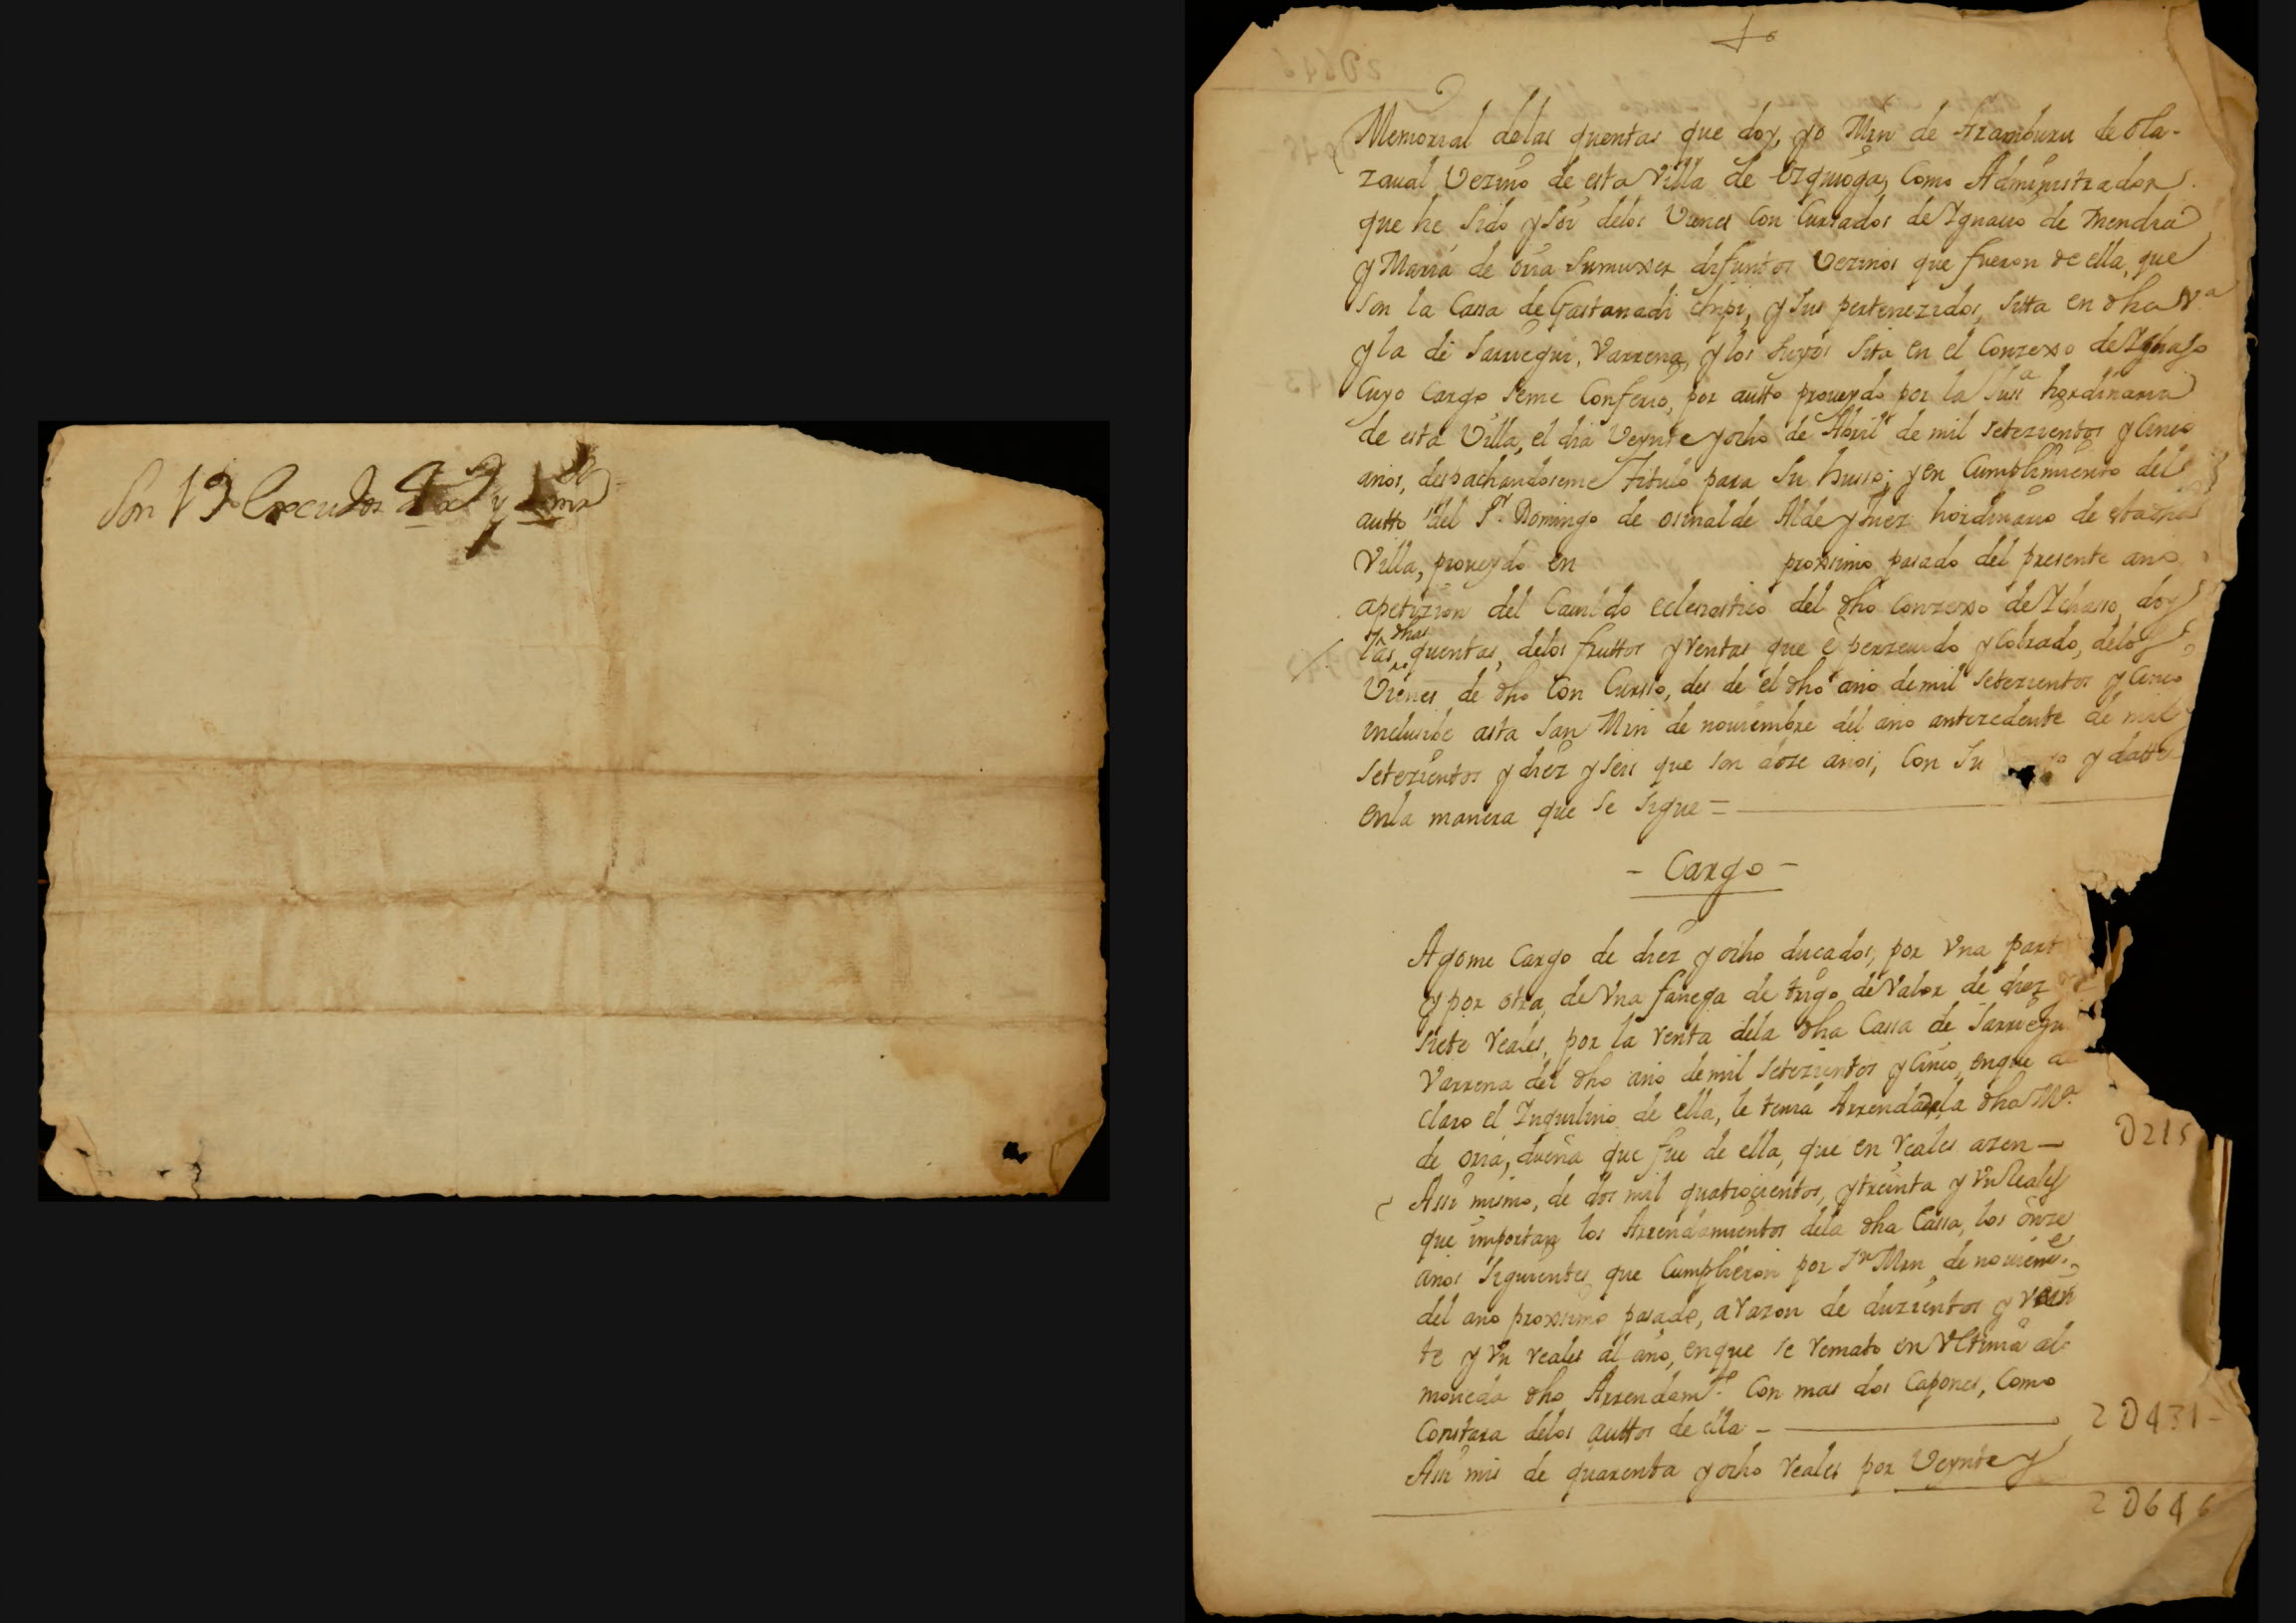 Son
Memorial delas quentas que doy, yo Mrn de Aramburu de ola-
zaual Vezino de esta Villa de Ezquioga, Como Administrador
que he sido y soi delos Vienes Con Cursados de Ygnacio de Mendia
y Maria de oria sumuxer difuntos Vezinos que fueron de ella, que
son la Cassa de Gastanadi Enpi, y sus pertenezidos, sitta en dha Va
y la de Sarruegui, Varrena, y los suyos sita en el Conzexo de Ychasso
Cuyo Cargo seme Confirio, por autto proueydo por la Jussa hordinaria
de esta Villa, el dia Veynte y ocho de Abril de mil setezientos y Cinco
años, despachandoseme titulo para su husso; y en Cumplimiento del
autto del Sr. Domingo de osinalde Alde y Juez hordinario de esta dha
Villa, proueydo en proximo pasado del presente año
apetizion del Cauildo eclesiastico del dho Conzexo de Ychasso, doy
las dhas quentas, delos fruttos y Rentas que e perzeuido y Cobrado, delos
Vienes de dho Con Cursso, des de el dho año demil setezientos y Cinco
inclusibe asta San Mrn de nouiembre del año antezedente de mil
setezientos y diez y seis que son doze años, Con su y datta
enla manera que se sigue =
- Cargo -
Agome Cargo de diez y ocho ducados, por Vna part
y por otra, de Vna fanega de trigo de Valor de diez
siete reales, por la renta dela dha Cassa de Sarruegui
Varrena del dho año demil setezientos y Cinco, enque de
claro el Inquilino de ella, le tenia Arrendada la dha Ma.
de oria, dueña que fue de ella, que en reales azen — D215
Assi mismo, de dos mil quatrocientos, y treinta y Vn Reales
que importan los Arrendamientos dela dha Cassa, los onze
años siguientes que Cumplieron por Sn Mrn de nouiemе.
del año proximo pasado, a razon de duzientos y Vein
te y Vn reales al año, enque se remato en Vltima al-
moneda dho Arrendamto. Con mas dos Capones, Como
Constara delos auttos de ella — 2D431-
Assi mis de quarenta y ocho reales por Veynte y
2D646